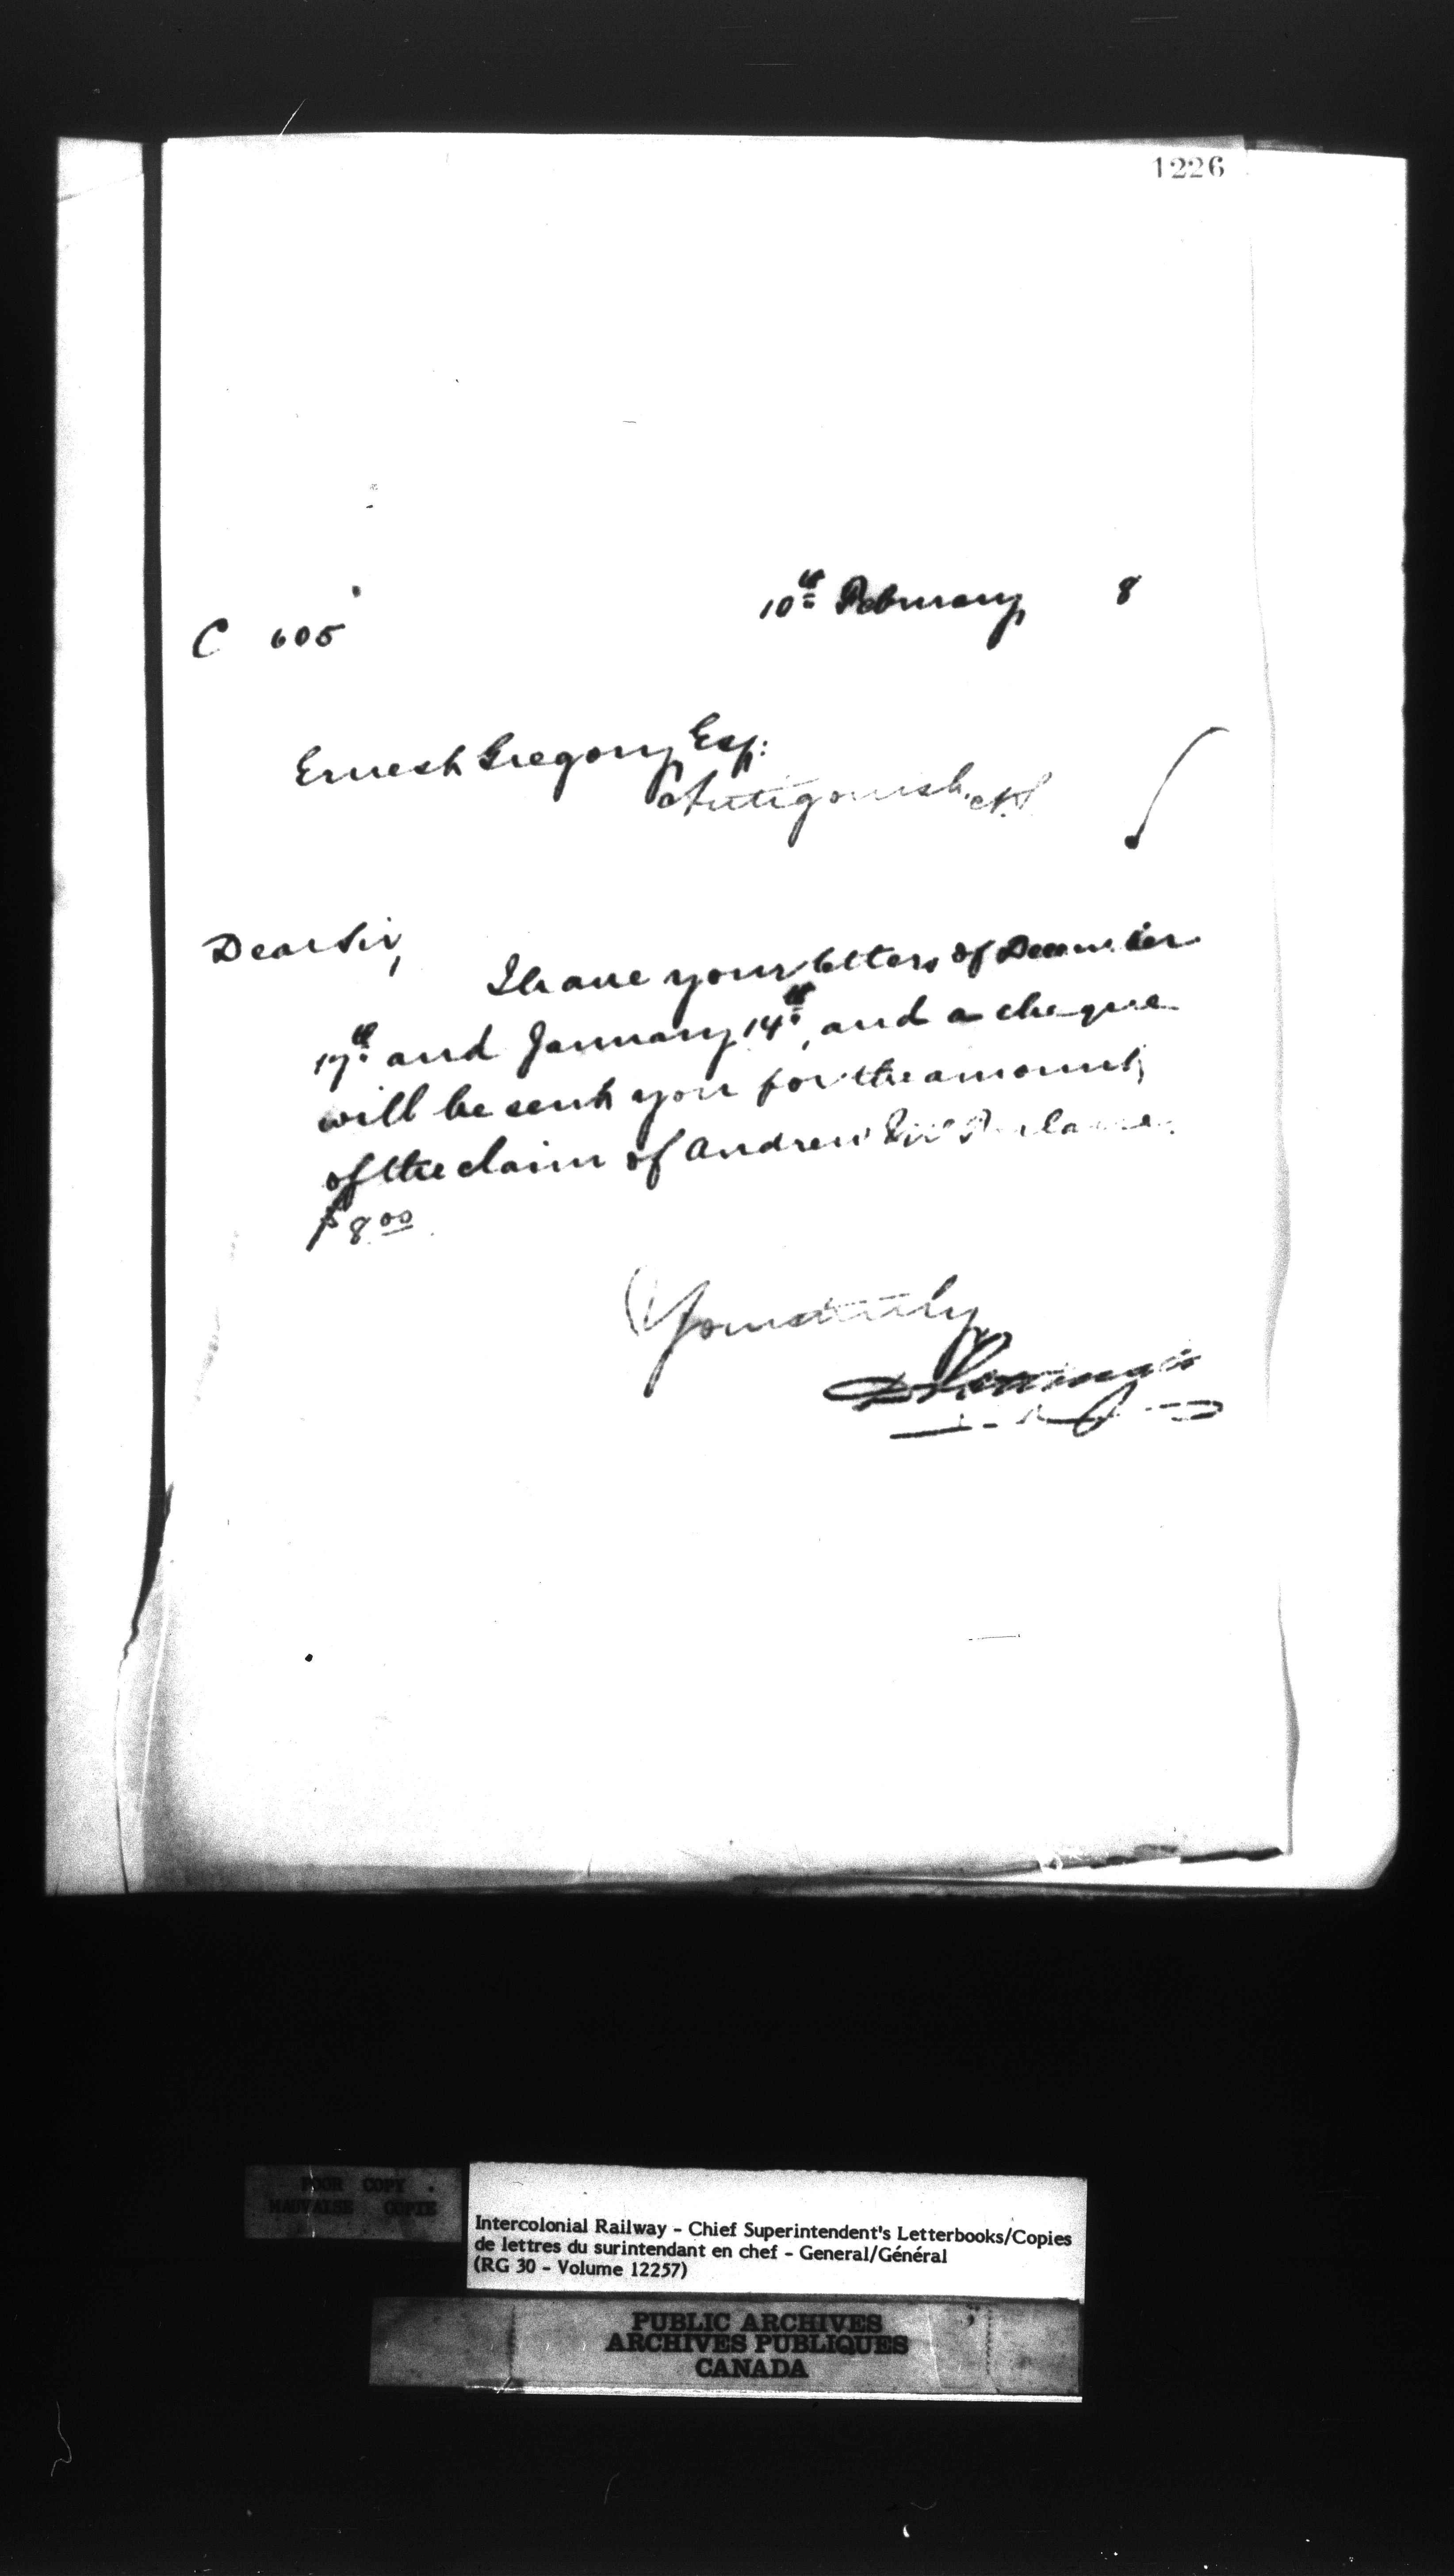 1226
10th February 8
C 605
Ernest Gregory Esq:
Antigonish, N.S.
Dear Sir,
I have your letters of December
17th and January 14th, and a cheque
will be sent you for the amount
of the claim of Andrew
$8.00
Yours truly
D Pottinger
POOR COPY
MAUVAISE COPIE
Intercolonial Railway - Chief Superintendent's Letterbooks/Copies
de lettres du surintendant en chef - General/Général
(RG 30 - Volume 12257)
PUBLIC ARCHIVES
ARCHIVES PUBLIQUES
CANADA